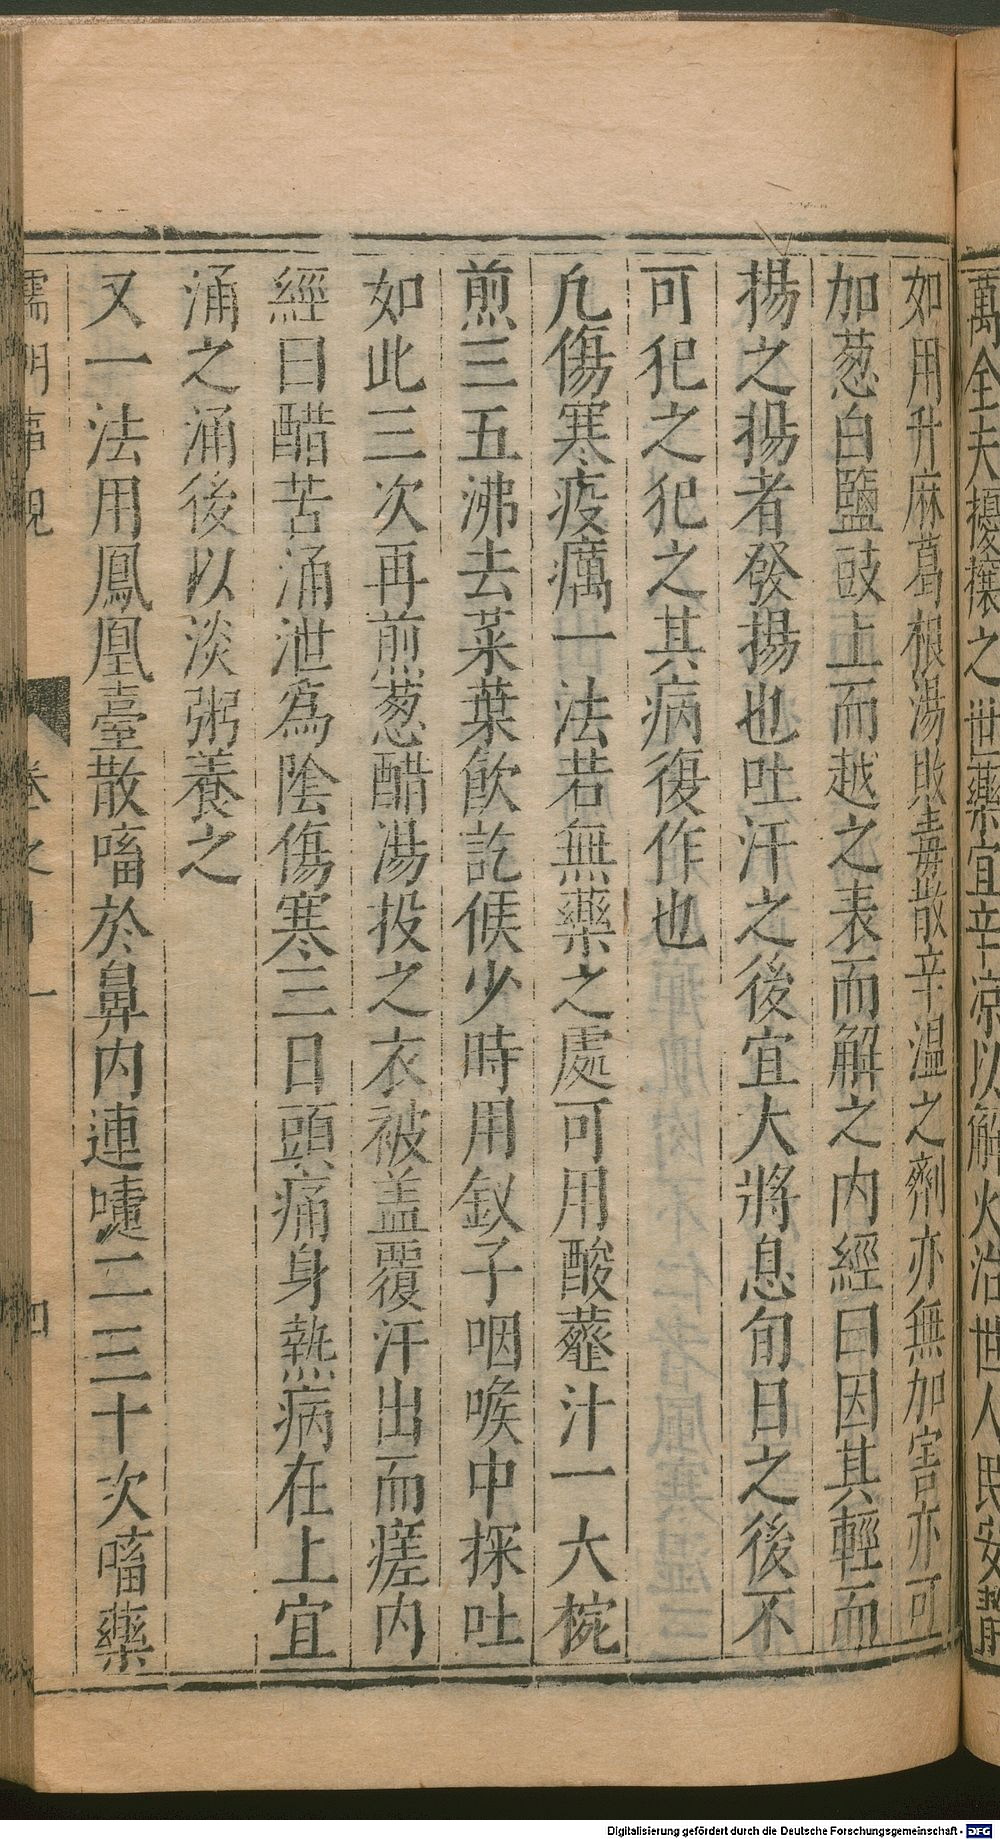 萬全夫擾攘之世藥宜辛凉以解火治世人民安靜
如用升麻葛根湯敗毒散辛温之劑亦無加害亦可
加葱白鹽豉上而越之表而解之内經曰因其輕而
揚之揚者發揚也吐汗之後宜大將息旬日之後不
可犯之犯之其病復作也
凢傷寒疫癘一法若無藥之處可用酸虀汁一大椀
煎三五沸去菜葉飲訖候少時用釵子咽喉中探吐
如此三次再煎葱醋湯投之衣被盖覆汗出而瘥内
經曰醋苦涌泄爲陰傷寒三日頭痛身熱病在上宜
涌之涌後以淡粥養之
又一法用鳳凰臺散㗜於鼻内連嚏二三十次㗜藥
儒門事親 卷之 一 四
Digitalisierung gefördert durch die Deutsche Forschungsgemeinschaft - DFG